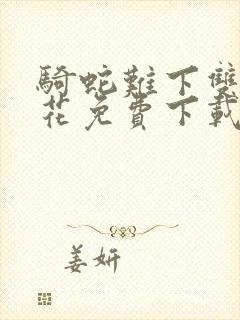 騎蛇難下雙
花免費下載
姜妍